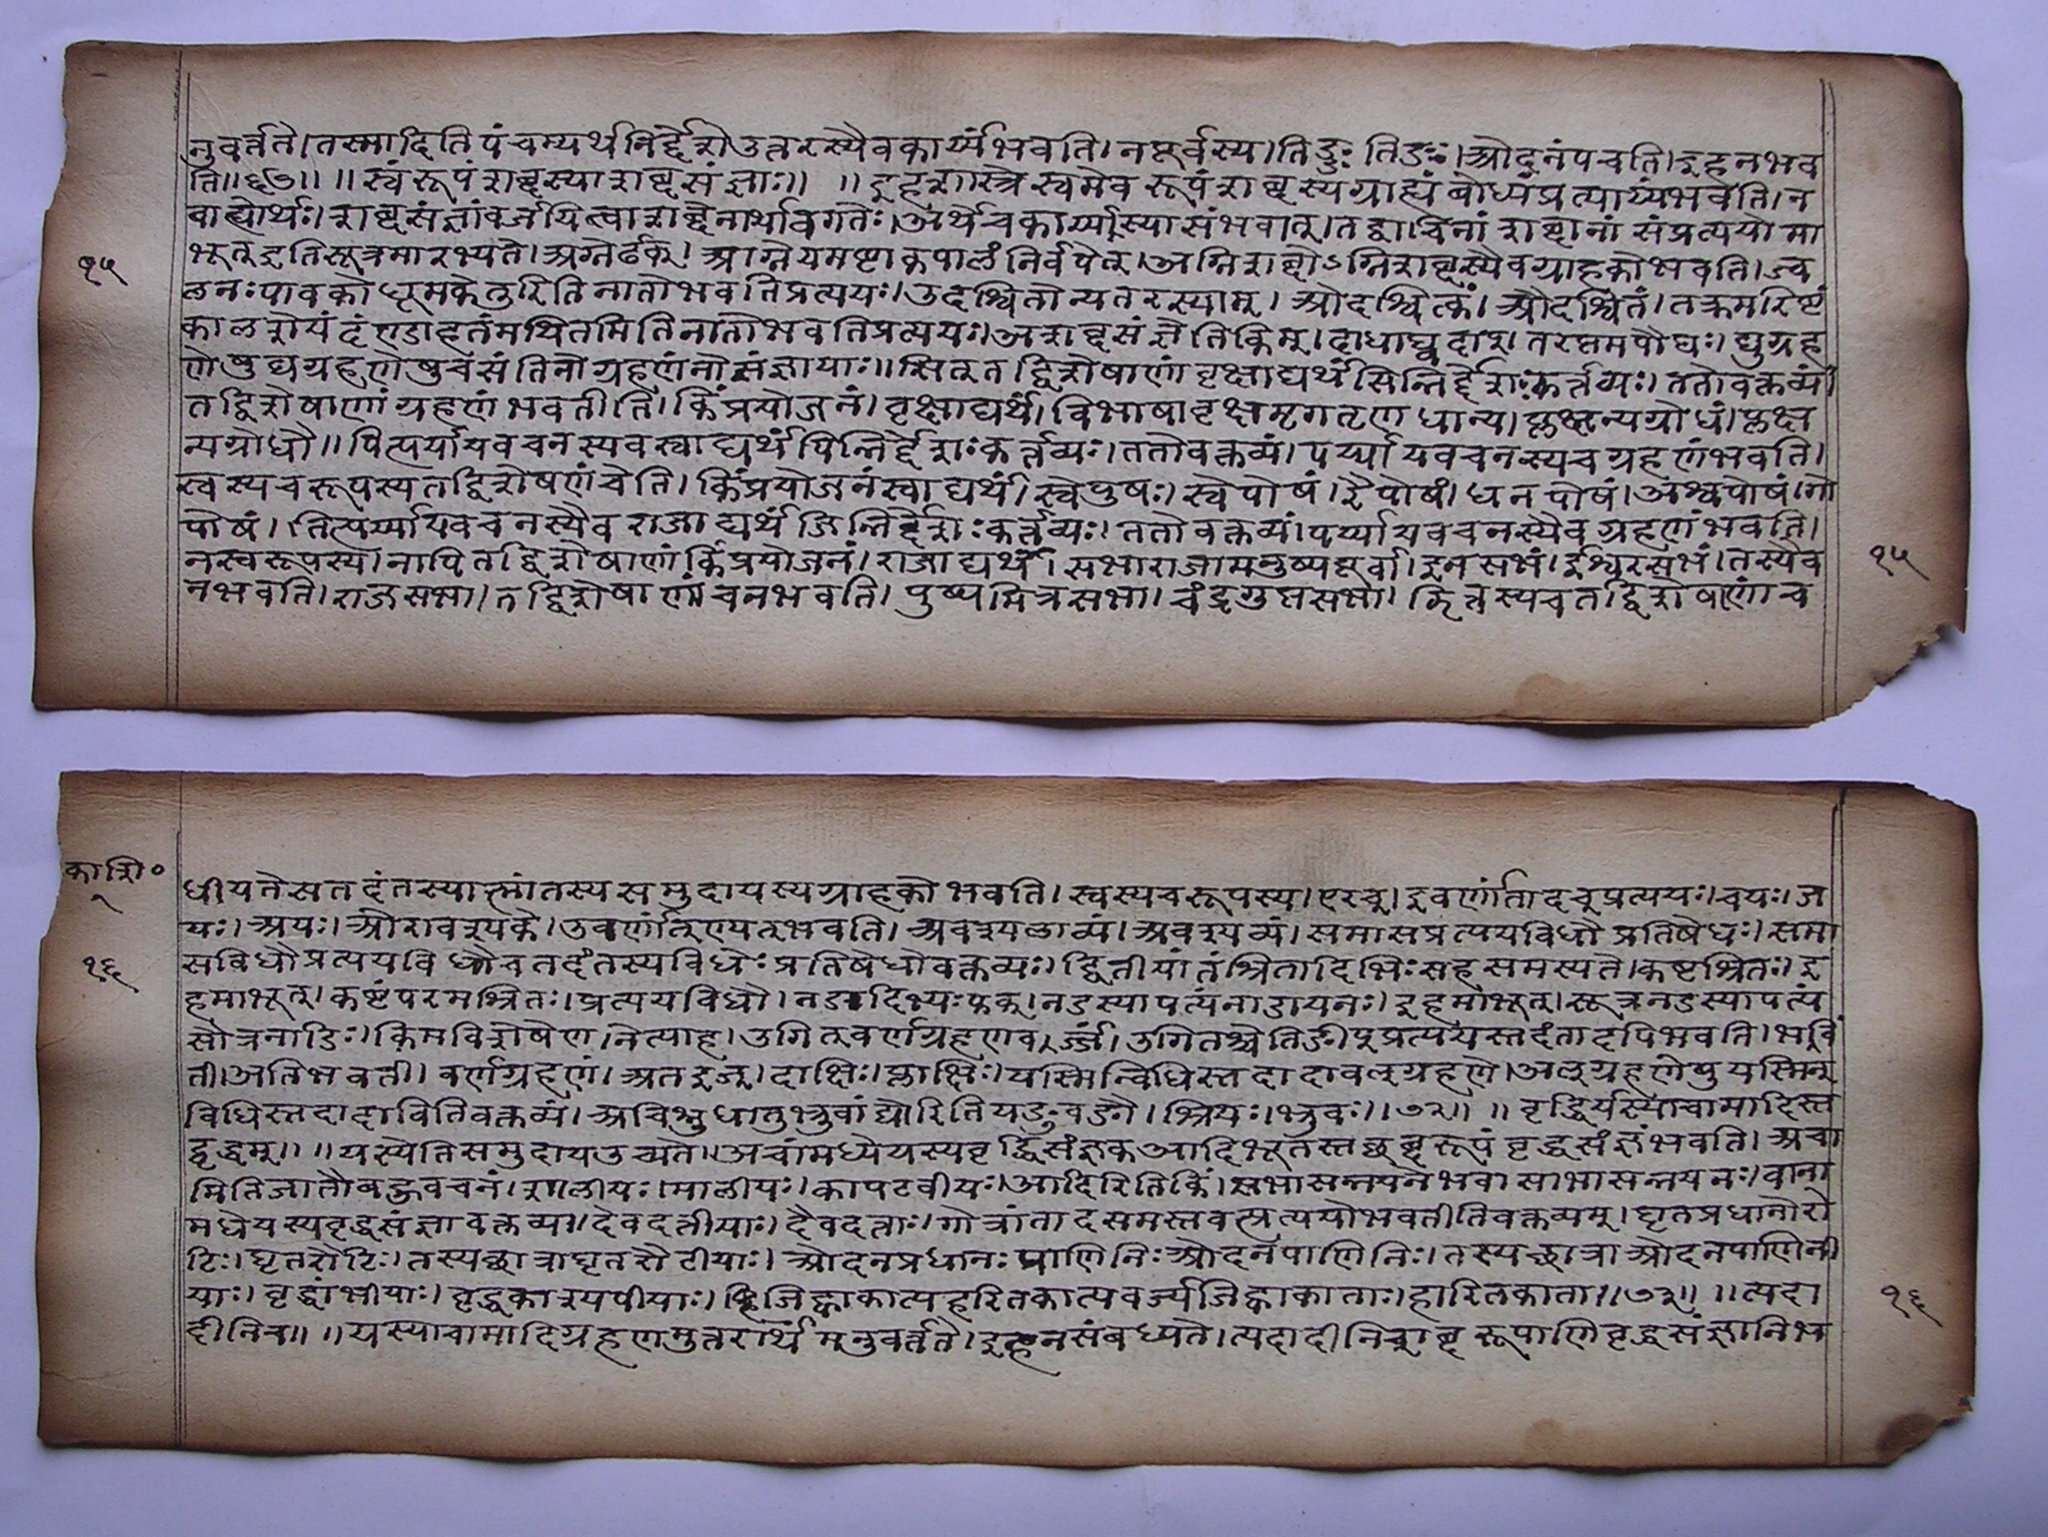 नुवर्त्तते।तस्मादितिपंचम्यर्थनिर्द्देशेउत्तरस्यैवकार्य्यंभवति।नपूर्वस्य।तिङ्ङतिङः।ओदनंपचति।इहनभव
ति॥६७॥ ॥स्वंरूपंशब्दस्याशब्दसंज्ञाः॥ ॥इहशास्त्रेस्वमेवरूपंशब्दस्यग्राह्यंबोध्यंप्रत्याय्यंभवति।न
बाह्योर्थः।शब्दसंज्ञांवर्जयित्वाशब्देनार्थावगतेः।अर्थेचकार्य्यास्यासंभवात्।तद्वाचिनांशब्दानांसंप्रत्ययोमा
१५
भूत्इतिसूत्रमारभ्यते।अग्नेर्ढक्।आग्नेयमष्टाकपालंनिर्वपेत्।अग्निशब्दोऽग्निशब्दस्यैवग्राहकोभवति।ज्व
लनःपावकोधूमकेतुरितिनातोभवतिप्रत्ययः।उदश्वितोन्यतरस्याम्।औदश्वित्कं।औदश्वितं।तक्रमरिष्टं
कालशेयंदंण्डाहतंमथितमितिनातोभवतिप्रत्ययः।अशब्दसंज्ञेतिकिम्।दाधाघ्वदाप्।तरप्तमपौघः।घुग्रह
णेषुघग्रहणेषुचसंतिनोग्रहणंनोसंज्ञायाः॥सित्तद्विशेषाणांवृक्षाद्यर्थंसिन्निर्द्देशःकर्त्तव्यः।ततोवक्तव्यं।
तद्विशेषाणांग्रहणंभवतीति।किंप्रयोजनं।वृक्षाद्यर्थं।विभाषावृक्षमृगतृणधान्य।प्लक्षन्यग्रोधं।प्लक्ष
न्यग्रोधौ॥पित्पर्यायवचनस्यवस्वाद्यर्थंपिन्निर्द्देशःकर्त्तव्यः।ततोवक्तव्यं।पर्य्यायवचनस्यचग्रहणंभवति।
स्वस्यचरूपस्यतद्विशेषणंचेति।किंप्रयोजनंस्वाद्यर्थं।स्वेपुषः।स्वेपोषं।रैपोषं।धनपोषं।अश्वपोषं।गो
पोषं।।तित्पर्य्यायवचनस्यैवराजाद्यर्थंजिन्निर्द्देशःकर्त्तव्यः।ततोवक्तव्यं।पर्य्यायवचनस्यैवग्रहणंभवति।
नस्वरूपस्य।नापितद्विशेषाणांकिंप्रयोजनं।राजाद्यर्थं।सभाराजामनुष्यपूर्वा।इनसभं।इश्वरसभं।तस्यैव
१५
नभवति।राजसभा।तद्विशेषाणांचनभवति।पुष्पमित्रसभा।चंद्रगुप्तसभा।झित्तस्यचतद्विशेषाणांच
काशि०
१
धीयतेसतदंतस्यात्मांतस्यसमुदायस्यग्राहकोभवति।स्वस्यचरूपस्य।एरच्।इवर्णांतादच्प्रत्ययः।चयः।ज
यः।अयः।ओरावश्यके।उवर्णांत्ण्यत्भवति।अवश्यलाव्यं।अवश्यव्यं।समासप्रत्ययविधौप्रतिषेधः।समा
१६
सविधौप्रत्ययविधौचतदंतस्यविधेःप्रतिषेधोवक्तव्यः।द्वितीयांतंश्रितादिभिःसहसमस्यते।कष्टश्रितः।इ
हमाभूत्।कष्टंपरमश्रितः।प्रत्ययविधौ।नडादिभ्यःफक्।नडस्यापत्यंनाडायनः।इहमाभूत्।सूत्रनडस्यापत्यं
सौत्रनाडिः।किमविशेषेण।नेत्याह।उगित्वर्णग्रहणवर्ज्जं।उगितश्चेतिङीप्प्रत्ययस्तदंतादपिभवति।भव
ती।अतिभवती।वर्णग्रहणं।अतइञ्।दाक्षिः।प्लाक्षिः।यस्मिन्विधिस्तदादावल्ग्रहणे।अल्ग्रहणेषुयस्मिन्
विधिस्तदादावितिवक्तव्यं।अचिश्नुधातुभ्रुवांय्वोरितियङुवङौ।श्रियः।भ्रुवः।।७२॥ ॥वृद्धिर्यस्याचामादिस्त
द्वृद्धम्॥ ॥यस्येतिसमुदायउच्यते।अचांमध्येयस्यवृद्धिसंज्ञकआदिभूतस्तच्छब्दरूपंवृद्धसंज्ञंभवति।अचा
मितिजातौबहुवचनं।शालीयः।मालीयः।कापटवीयः।आदिरितिकिं।सभासन्नयनेभवासाभासन्नयनः।वाना
मधेयस्यवृद्धसंज्ञावक्तव्या।देवदत्तीयाः।दैवदत्ताः।गोत्रांतादसमस्तवत्प्रत्ययोभवतीतिवक्तव्यम्।घृतप्रधानोरौ
ढिः।घृतरौढिः।तस्यछात्राघृतरौढीयाः।ओदनप्रधानःपाणिनिःओदनपाणिनिः।तस्यछात्राओदनपाणिनी
याः।वृद्धांभीयाः।वृद्धकाश्यपीयाः।जिह्वाकात्यहरितकात्यवर्ज्यजिह्वाकाताः।हारितकाता।।७३॥ ॥त्यदा
१६
दीनिच॥ ॥यस्याचामादिग्रहणमुत्तरार्थमनुवर्त्तते।इहनसंबध्यते।त्यदादीनिशब्दरूपाणिवृद्धसंज्ञानिभ